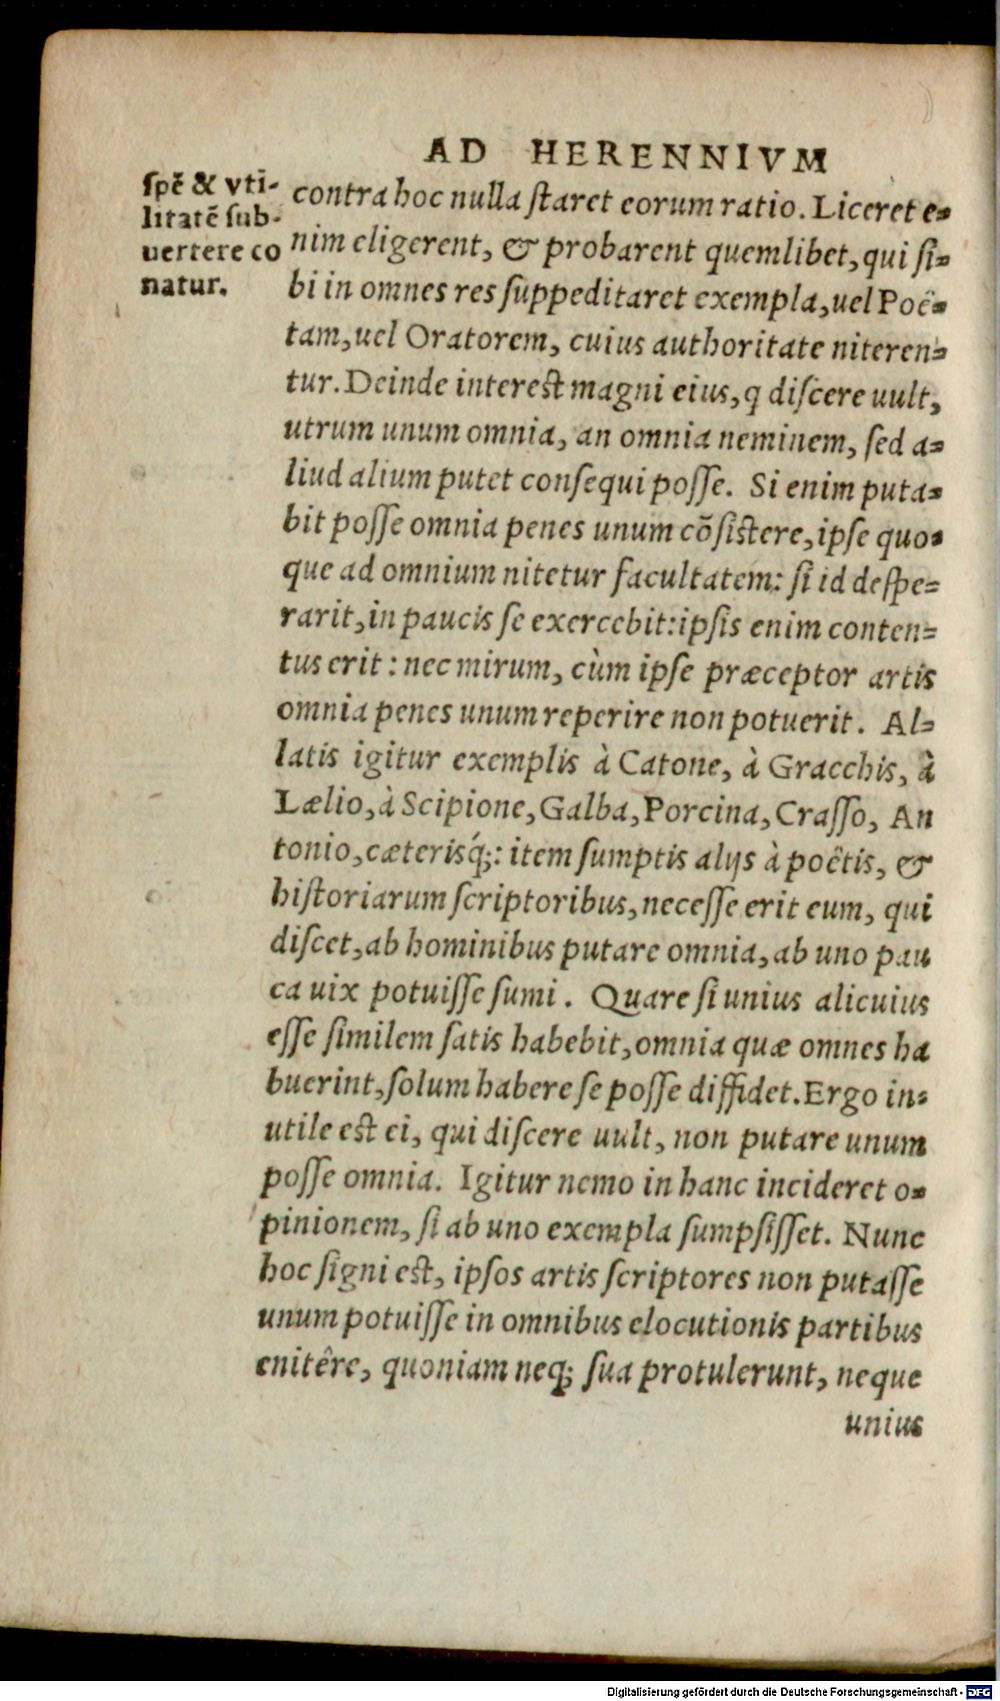 AD HERENNIVM
spē & vti-
litatē sub-
uertere co
natur.
contra hoc nulla staret eorum ratio. Liceret e-
nim eligerent, & probarent quemlibet, qui si-
bi in omnes res suppeditaret exempla, uel Poë-
tam, uel Oratorem, cuius authoritate niteren-
tur. Deinde interest magni eius, q discere uult,
utrum unum omnia, an omnia neminem, sed a-
liud alium putet consequi posse. Si enim puta-
bit posse omnia penes unum cōsistere, ipse quo-
que ad omnium nitetur facultatem: si id despe-
rarit, in paucis se exercebit: ipsis enim conten-
tus erit: nec mirum, cùm ipse præceptor artis
omnia penes unum reperire non potuerit. Al-
latis igitur exemplis à Catone, à Gracchis, à
Lælio, à Scipione, Galba, Porcina, Crasso, An
tonio, cæterisq́;: item sumptis alijs à poëtis, &
historiarum scriptoribus, necesse erit eum, qui
discet, ab hominibus putare omnia, ab uno pau
ca uix potuisse sumi. Quare si unius alicuius
esse similem satis habebit, omnia quæ omnes ha
buerint, solum habere se posse diffidet. Ergo in-
utile est ei, qui discere uult, non putare unum
posse omnia. Igitur nemo in hanc incideret o-
pinionem, si ab uno exempla sumpsisset. Nunc
hoc signi est, ipsos artis scriptores non putasse
unum potuisse in omnibus elocutionis partibus
enitêre, quoniam neq; sua protulerunt, neque
unius
Digitalisierung gefördert durch die Deutsche Forschungsgemeinschaft - DFG